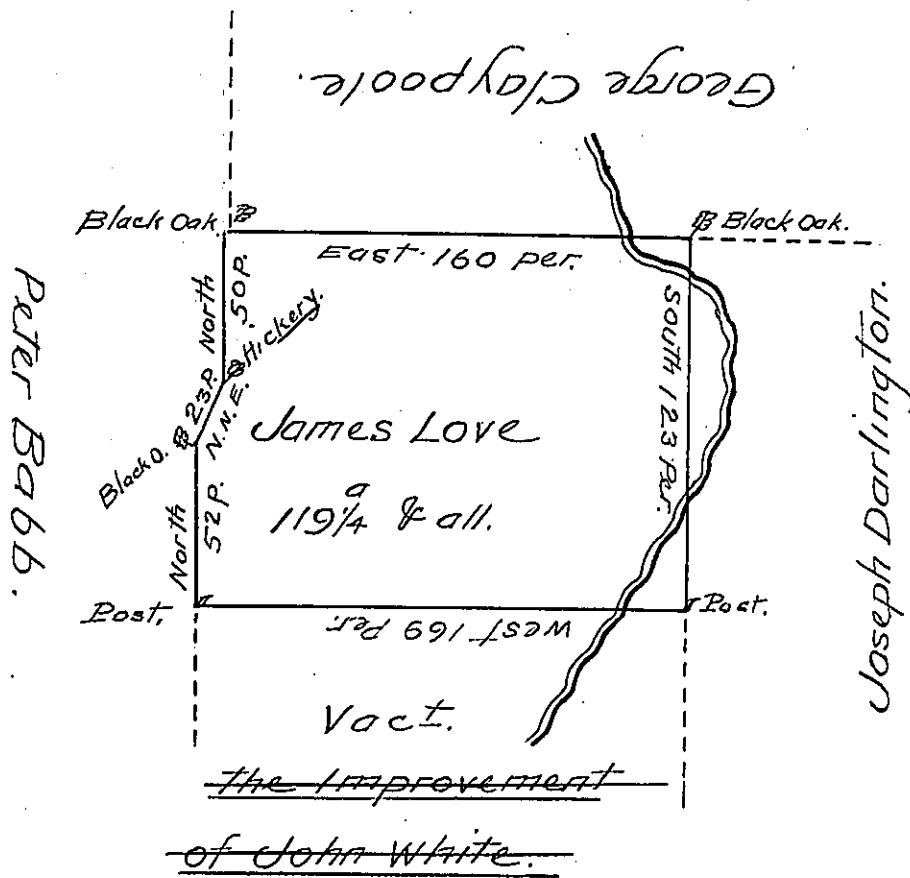 George Claypoole.
Black Oak.
Black Oak.
East 160 per.
North 50P.
Hickery.
N.N.E. 23P.
Black O.
North 52P.
South 123 Per.
James Love
119 1/4 a & all.
Peter Babb.
Joseph Darlington.
Post.
Post.
West 169 Per.
Vact.
the Improvement
of John White.